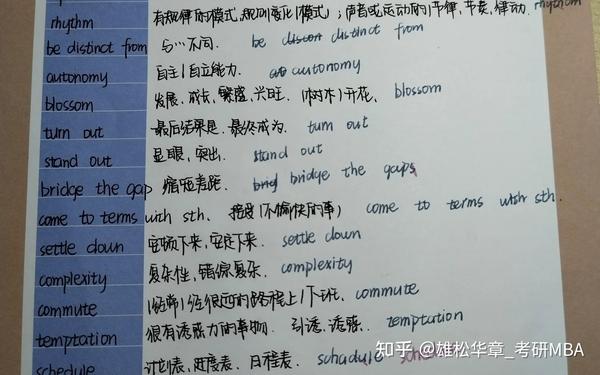 rhythm 有规律的模式,规则变化(模式);声音或运动的)节律,节奏,律动. rhythm
be distinct from 与…不同. be distinct from
autonomy 自主|自立能力. autonomy
blossom 发展、成长、繁盛、兴旺. (树木)开花、 blossom
turn out 最后结果是、最终成为. turn out
stand out 显眼,突出. stand out
bridge the gap 缩短差距. bridge the gaps
come to terms with sth. 接受(不愉快的事) come to terms with sth.
settle down 安顿下来,安定下来. settle down
complexity 复杂性,错综复杂. complexity
commute (经常)经很远的路程上|下班、 commute
temptation 很有诱惑力的事物. 引诱、诱惑. temptation
schedule 计划表、进度表、日程表. schadule
知乎 @雄松华章_考研MBA